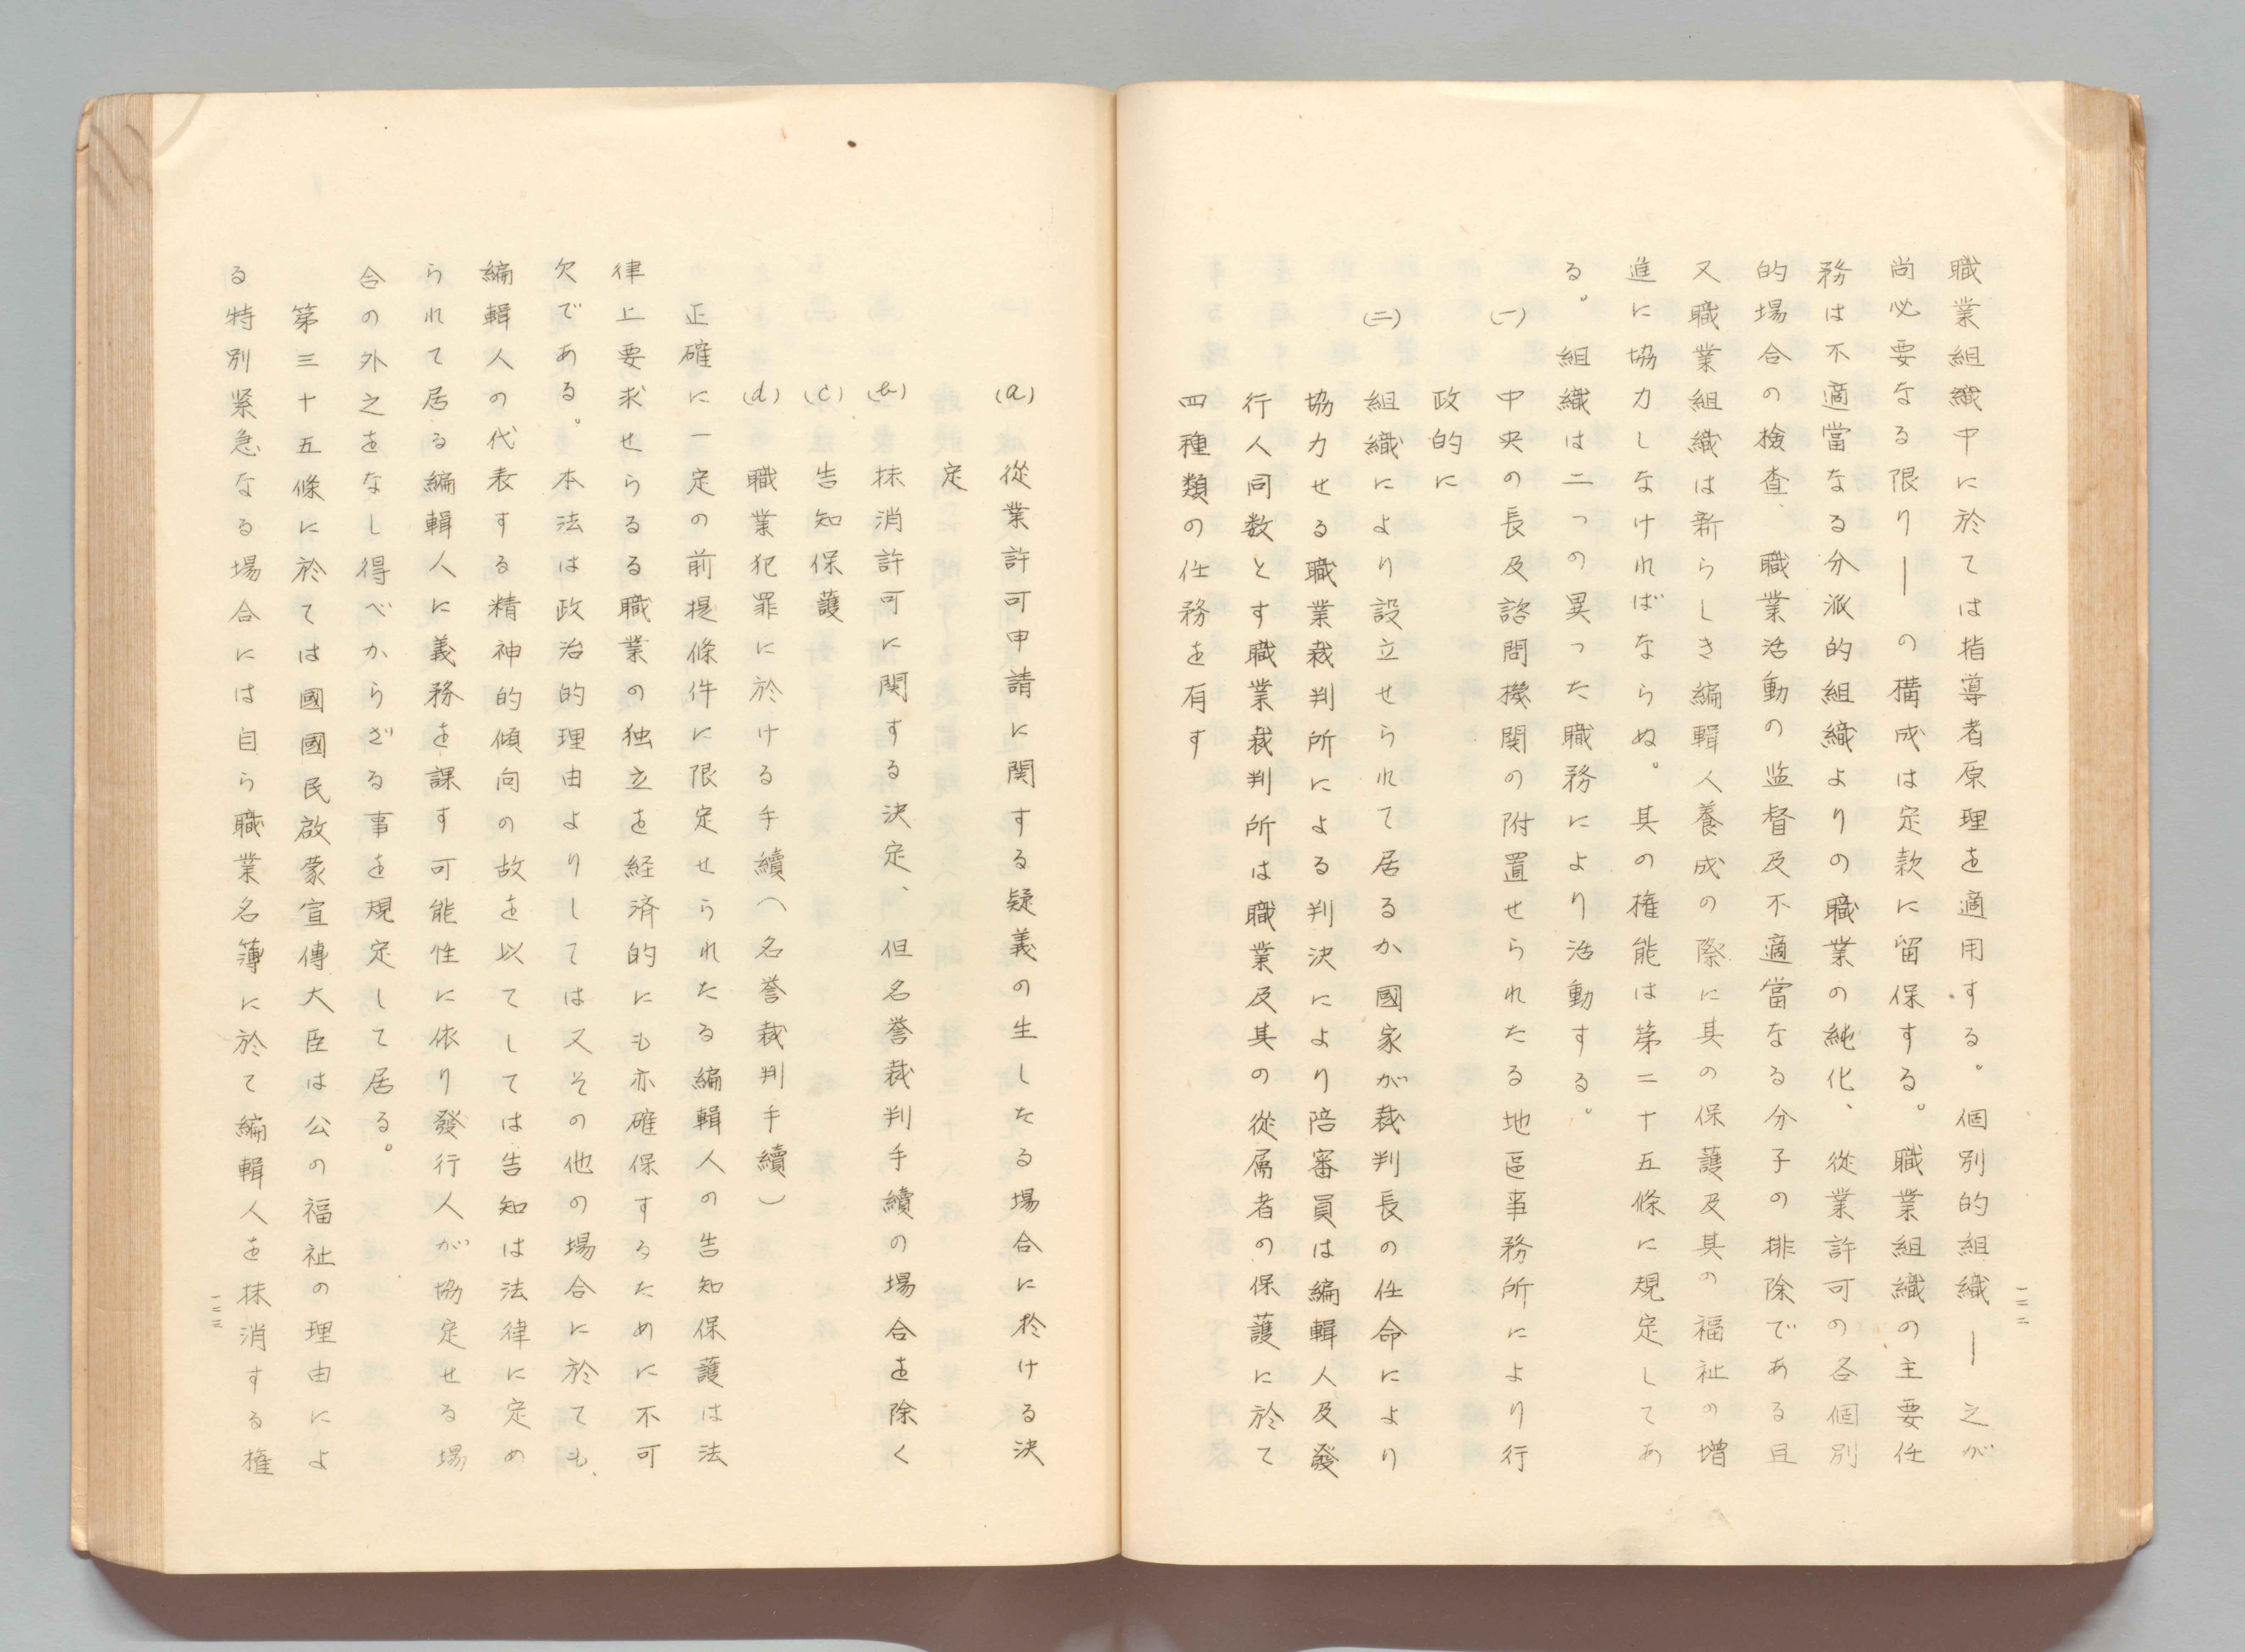 職業組織中に於ては指導者原理を適用する。個別的組織―之が
尚必要なる限り―の構成は定款に留保する。職業組織の主要任
務は不適當なる分派的組織よりの職業の純化、從業許可の各個別
的場合の檢査、職業活動の监督及不適當なる分子の排除である且
又職業組織は新らしき編輯人養成の際に其の保護及其の福祉の増
進に協力しなければならぬ。其の権能は第二十五條に規定してあ
る。組織は二つの異った職務により活動する。
(一)中央の長及諮問機関の附置せられたる地區事務所により行
政的に
(二)組織により設立せられて居るか國家が裁判長の任命により
協力せる職業裁判所による判決により陪審員は編輯人及發
行人同数とす職業裁判所は職業及其の從属者の保護に於て
四種類の任務を有す
一二二
(a)從業許可申請に関する疑義の生したる場合に於ける決
定
(b)抹消許可に関する決定、但名誉裁判手續の場合を除く
(c)告知保護
(d)職業犯罪に於ける手續(名誉裁判手續)
正確に一定の前提條件に限定せられたる編輯人の告知保護は法
律上要求せらるる職業の独立を経済的にも亦確保するために不可
欠である。本法は政治的理由よりしては又その他の場合に於ても、
編輯人の代表する精神的傾向の故を以てしては告知は法律に定め
られて居る編輯人に義務を課す可能性に依り發行人が協定せる場
合の外之をなし得べからざる事を規定して居る。
第三十五條に於ては國國民啟蒙宣傳大臣は公の福祉の理由によ
る特別緊急なる場合には自ら職業名簿に於て編輯人を抹消する権
一二三